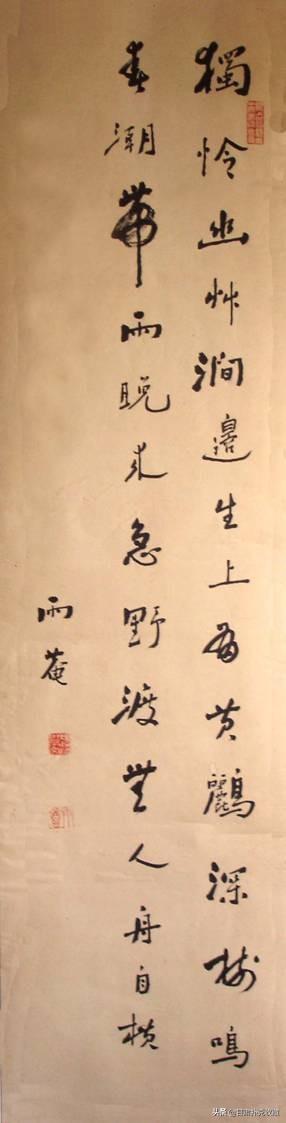 獨怜幽艸澗邊生上有黄鸝深樹鳴
春潮帶雨晚來急野渡無人舟自横
雨菴